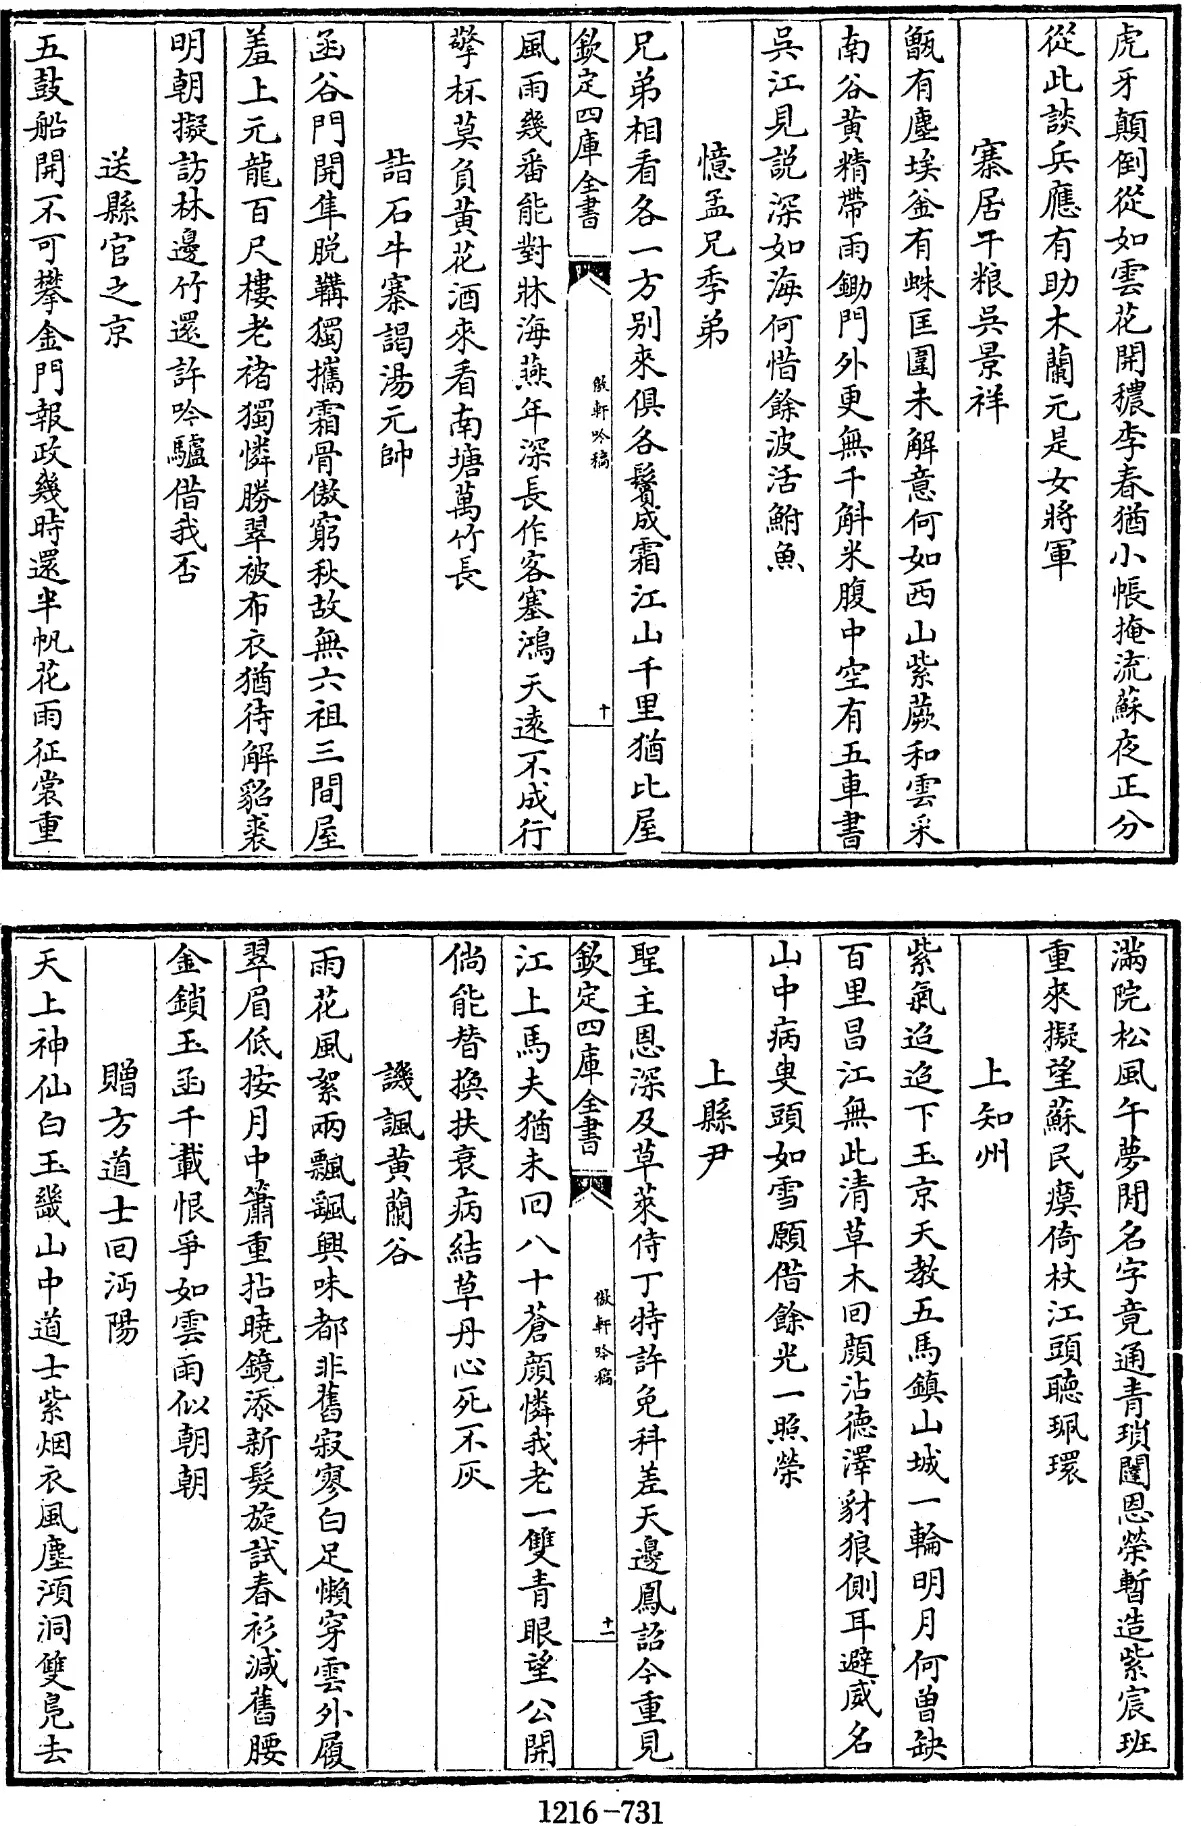 虎牙顛倒從如雲花開穠李春猶小帳掩流蘇夜正分
從此談兵應有助木蘭元是女將軍
寨居干粮吳景祥
甑有塵埃釜有蛛匡圍未解意何如西山紫蕨和雲采
南谷黄精帶雨鋤門外更無千斛米腹中空有五車書
吳江見説深如海何惜餘波活鮒魚
憶孟兄季弟
兄弟相看各一方别來俱各鬢成霜江山千里猶比屋
欽定四庫全書
傲軒吟稿
十
風雨幾番能對牀海燕年深長作客塞鴻天遠不成行
擎杯莫負黄花酒來看南塘萬竹長
詣石牛寨謁湯元帥
函谷門開隼脱鞲獨攜霜骨傲窮秋故無六祖三間屋
羞上元龍百尺樓老褚獨憐勝翠被布衣猶待解貂裘
明朝擬訪林邊竹還許吟驢借我否
送縣官之京
五鼓船開不可攀金門報政幾時還半帆花雨征裳重
滿院松風午夢閒名字竟通青瑣闥恩榮暫造紫宸班
重來擬望蘇民瘼倚杖江頭聽珮環
上知州
紫氣迢迢下玉京天教五馬鎮山城一輪明月何曾缺
百里昌江無此清草木回顔沾德澤豺狼側耳避威名
山中病叟頭如雪願借餘光一照榮
上縣尹
聖主恩深及草萊侍丁特許免科差天邊鳳詔今重見
欽定四庫全書
傲軒吟稿
十一
江上馬夫猶未回八十蒼顔憐我老一雙青眼望公開
倘能替換扶衰病結草丹心死不灰
譏諷黄蘭谷
雨花風絮兩飄颻興味都非舊寂寥白足懶穿雲外履
翠眉低按月中簫重拈曉鏡添新髮旋試春衫減舊腰
金鎖玉函千載恨爭如雲雨似朝朝
贈方道士回沔陽
天上神仙白玉畿山中道士紫烟衣風塵澒洞雙鳧去
1216-731